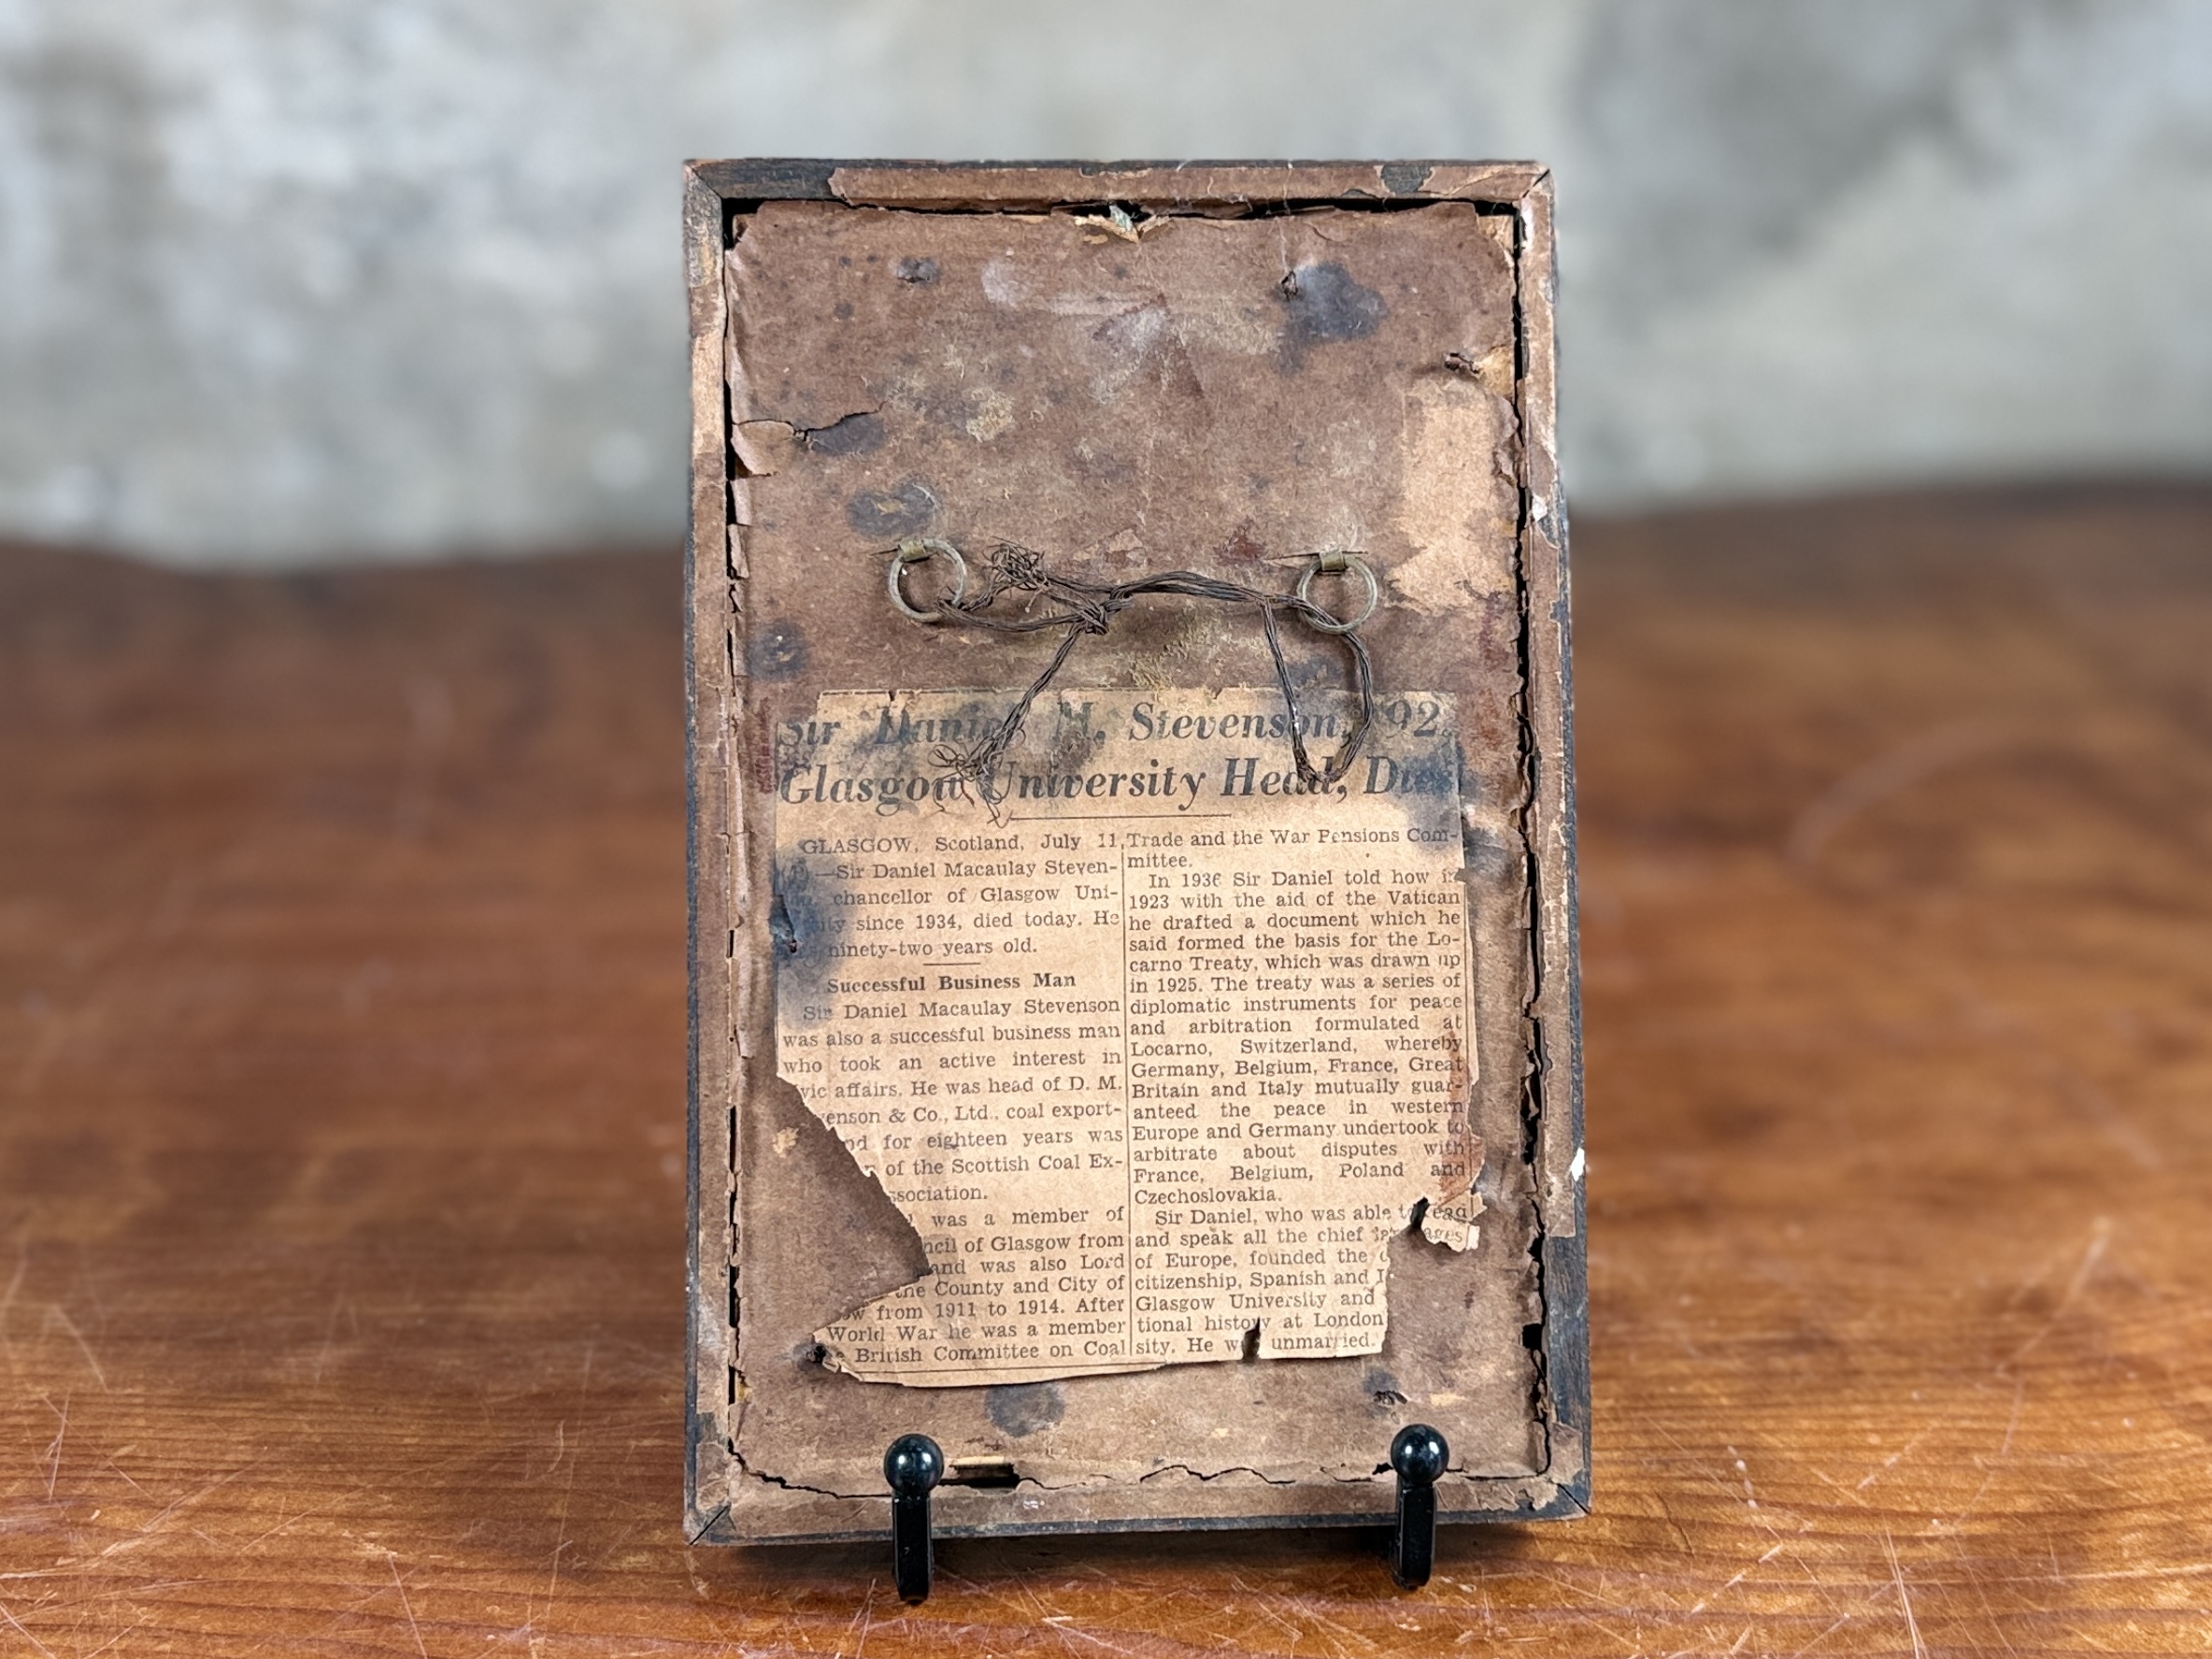 Sir Daniel M. Stevenson, 92,
Glasgow University Head, Dies
GLASGOW, Scotland, July 11
—Sir Daniel Macaulay Steven-
chancellor of Glasgow Uni-
since 1934, died today. He
ninety-two years old.
Successful Business Man
Sir Daniel Macaulay Stevenson
was also a successful business man
who took an active interest in
affairs. He was head of D. M.
& Co., Ltd., coal export-
for eighteen years was
of the Scottish Coal Ex-
was a member of
of Glasgow from
and was also Lord
the County and City of
from 1911 to 1914. After
World War he was a member
British Committee on Coal
Trade and the War Pensions Com-
mittee.
In 1936 Sir Daniel told how in
1923 with the aid of the Vatican
he drafted a document which he
said formed the basis for the Lo-
carno Treaty, which was drawn up
in 1925. The treaty was a series of
diplomatic instruments for peace
and arbitration formulated at
Locarno, Switzerland, whereby
Germany, Belgium, France, Great
Britain and Italy mutually guar-
anteed the peace in western
Europe and Germany undertook to
arbitrate about disputes with
France, Belgium, Poland and
Czechoslovakia.
Sir Daniel, who was able to read
and speak all the chief
of Europe, founded the
citizenship, Spanish and
Glasgow University and
tional history at London
sity. He unmarried.